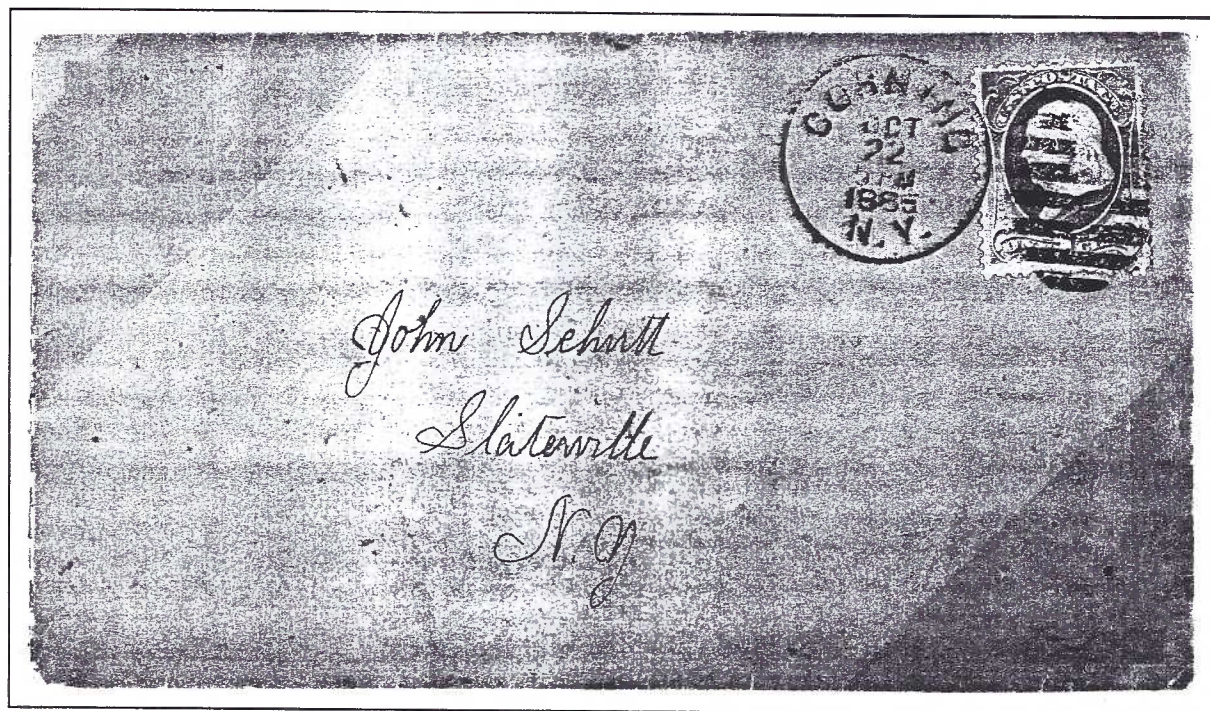 CORNING
OCT
22
1885
N.Y.
John Schutt
Slaterville
N.Y